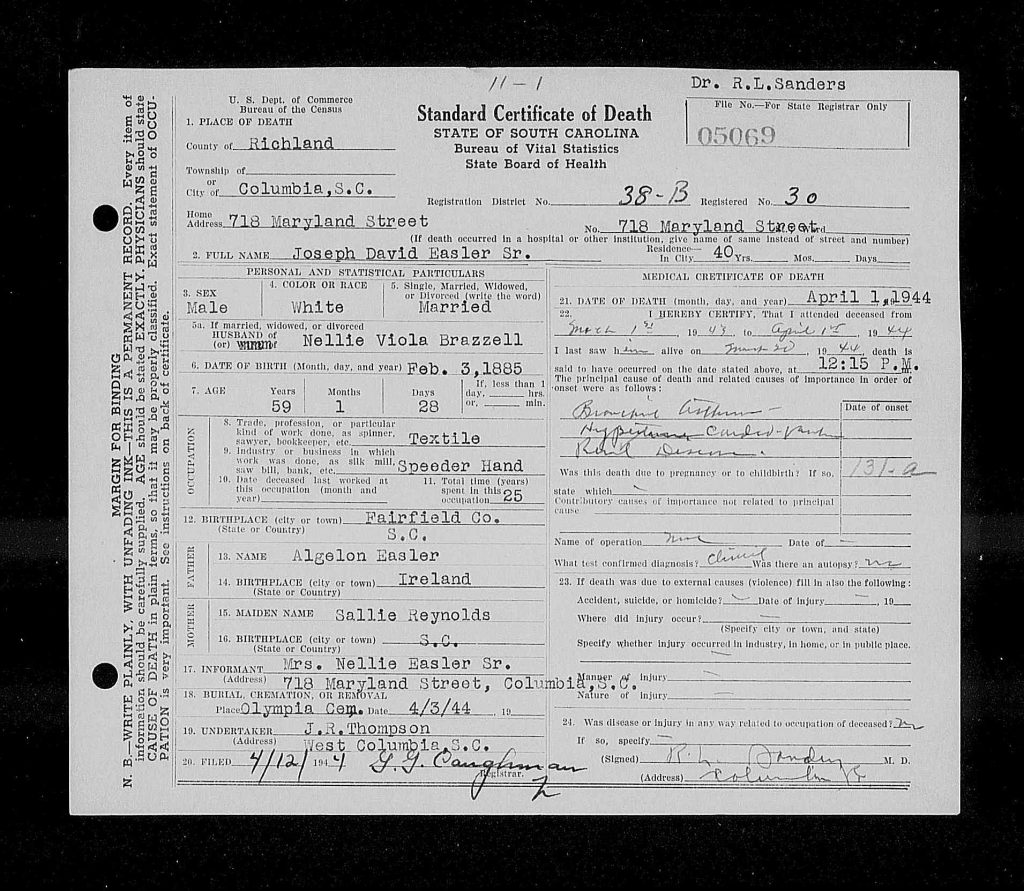 11-1
Dr. R.L.Sanders
U. S. Dept. of Commerce
Bureau of the Census
Standard Certificate of Death
STATE OF SOUTH CAROLINA
Bureau of Vital Statistics
State Board of Health
File No.—For State Registrar Only
05069
1. PLACE OF DEATH
County of Richland
Township of
or
City of Columbia,S.C.
Registration District No. 38-B Registered No. 30
Home
Address 718 Maryland Street
No. 718 Maryland Street
(If death occurred in a hospital or other institution, give name of same instead of street and number)
2. FULL NAME Joseph David Easler Sr.
Residence—
In City 40 Yrs. Mos. Days
PERSONAL AND STATISTICAL PARTICULARS
3. SEX
Male
4. COLOR OR RACE
White
5. Single, Married, Widowed,
or Divorced (write the word)
Married
5a. If married, widowed, or divorced
HUSBAND of
(or) Nellie Viola Brazzell
6. DATE OF BIRTH (Month, day, and year) Feb. 3,1885
7. AGE Years Months Days
59 1 28
If, less than 1
day, hrs.
or, min.
OCCUPATION
8. Trade, profession, or particular
kind of work done, as spinner,
sawyer, bookkeeper, etc. Textile
9. Industry or business in which
work was done, as silk mill,
saw bill, bank, etc. Speeder Hand
10. Date deceased last worked at
this occupation (month and
year)
11. Total time (years)
spent in this
occupation 25
12. BIRTHPLACE (city or town) Fairfield Co.
(State or Country) S.C.
FATHER
13. NAME Algelon Easler
14. BIRTHPLACE (city or town) Ireland
(State or Country)
MOTHER
15. MAIDEN NAME Sallie Reynolds
16. BIRTHPLACE (city or town) S.C.
(State or Country)
17. INFORMANT Mrs. Nellie Easler Sr.
(Address) 718 Maryland Street, Columbia,S.C.
18. BURIAL, CREMATION, OR REMOVAL
Place Olympia Cem. Date 4/3/44 , 19
19. UNDERTAKER J.R.Thompson
(Address) West Columbia,S.C.
20. FILED 4/12/ 1944 G. G. Caughman
Registrar.
MEDICAL CRETIFICATE OF DEATH
21. DATE OF DEATH (month, day, and year) April 1, 1944
22. I HEREBY CERTIFY, That I attended deceased from
1st 1943 to April 1st 1944
I last saw him alive on , 1944, death is
said to have occurred on the date stated above, at 12:15 P.M.
The principal cause of death and related causes of importance in order of
onset were as follows:
Date of onset
Bronchial Asthma
Hypertensive Cardio-
Renal Disease.
131-a
Was this death due to pregnancy or to childbirth? If so,
state which
Contributory causes of importance not related to principal
cause
Name of operation Date of
What test confirmed diagnosis? Clinical Was there an autopsy? no
23. If death was due to external causes (violence) fill in also the following:
Accident, suicide, or homicide? Date of injury , 19
Where did injury occur?
(Specify city or town, and state)
Specify whether injury occurred in industry, in home, or in public place.
Manner of injury
Nature of injury
24. Was disease or injury in any way related to occupation of deceased? no
If so, specify
(Signed) R. L. Sanders M. D.
(Address) Columbia
MARGIN FOR BINDING
N. B.—WRITE PLAINLY, WITH UNFADING INK—THIS IS A PERMANENT RECORD. Every item of
information should be carefully supplied. AGE should be stated EXACTLY. PHYSICIANS should state
CAUSE OF DEATH in plain terms, so that it may be properly classified. Exact statement of OCCU-
PATION is very important. See instructions on back of certificate.